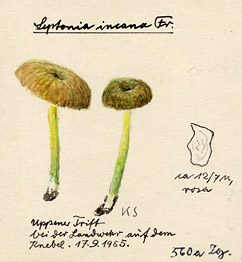 Leptonia incana Fr.
ca 12/7 µ,
rosa
KS
Uppener Trift
bei der Landwehr auf dem
Knebel. 17.9.1955.
560a Zg.